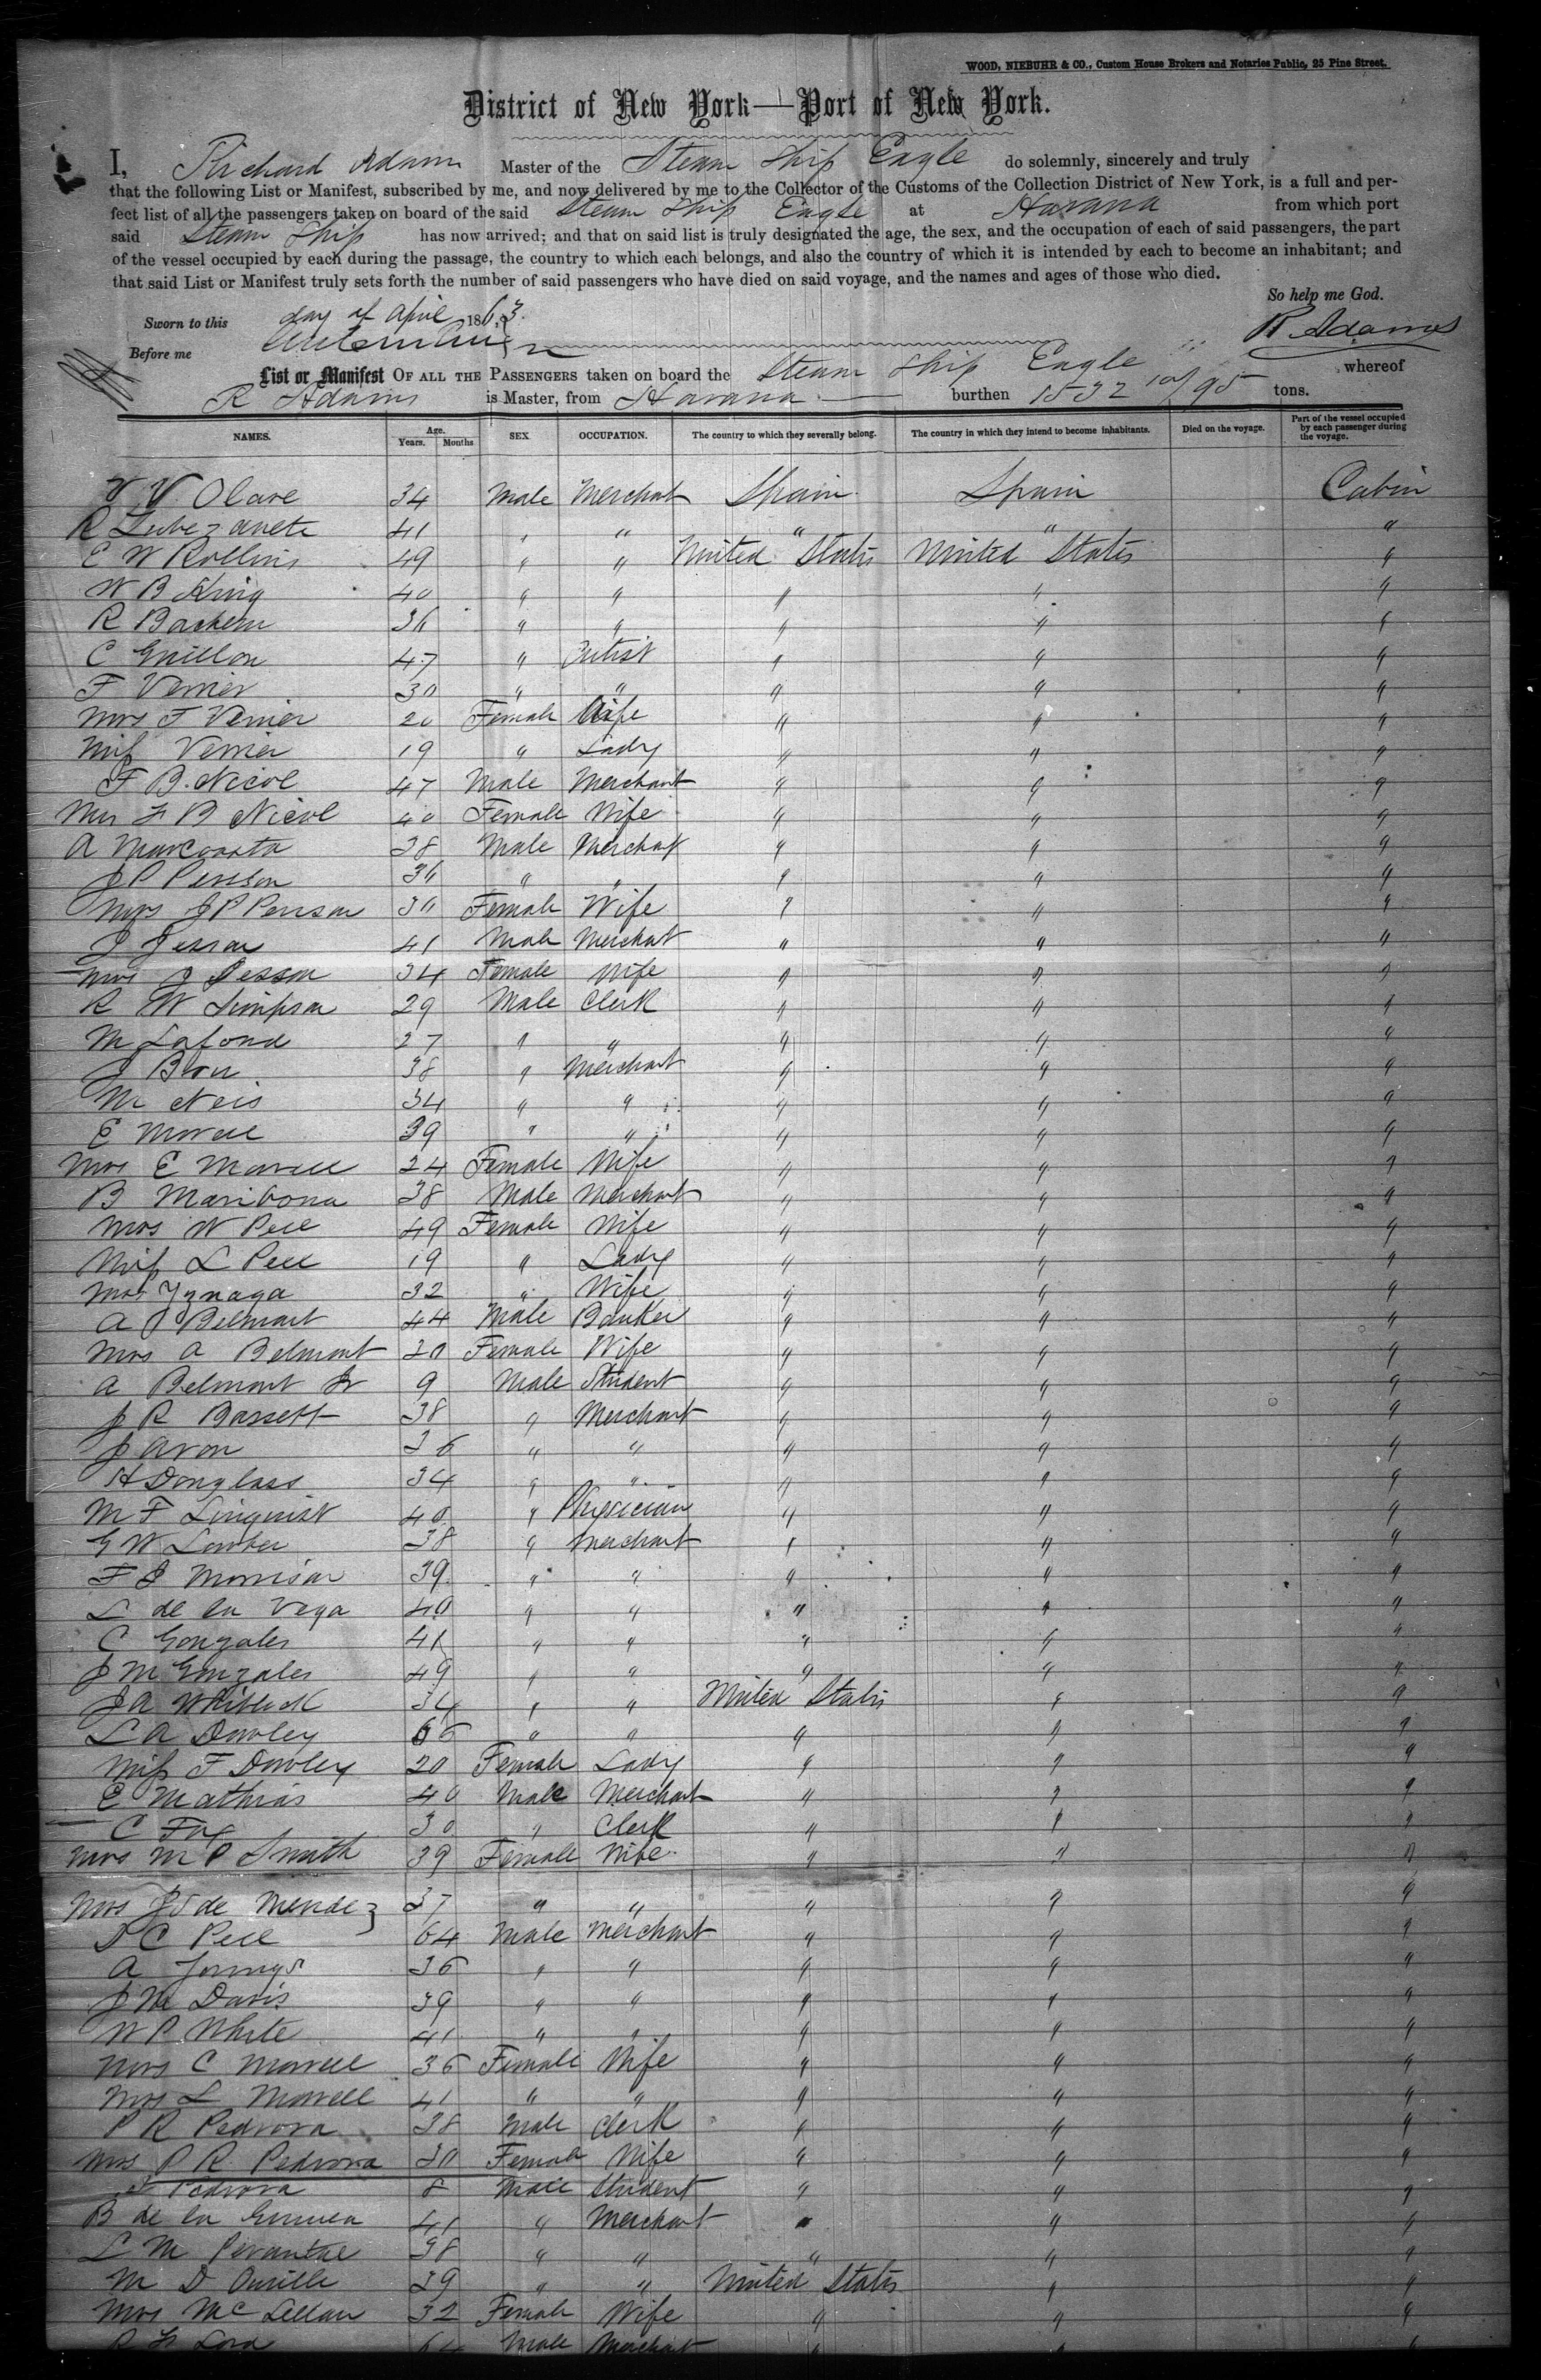 WOOD, NIEBUHR & CO., Custom House Brokers and Notaries Public, 25 Pine Street.
District of New York—Port of New York.
I, Richard Adams Master of the Steam Ship Eagle do solemnly, sincerely and truly
that the following List or Manifest, subscribed by me, and now delivered by me to the Collector of the Customs of the Collection District of New York, is a full and per-
fect list of all the passengers taken on board of the said Steam Ship Eagle at Havana from which port
said Steam Ship has now arrived; and that on said list is truly designated the age, the sex, and the occupation of each of said passengers, the part
of the vessel occupied by each during the passage, the country to which each belongs, and also the country of which it is intended by each to become an inhabitant; and
that said List or Manifest truly sets forth the number of said passengers who have died on said voyage, and the names and ages of those who died.
So help me God.
Sworn to this day of April 1863.
R Adams
Before me
List or Manifest OF ALL THE PASSENGERS taken on board the Steam Ship Eagle whereof
R Adams is Master, from Havana burthen 1532 10/95 tons.
NAMES. Age. Years. Months SEX OCCUPATION. The country to which they severally belong. The country in which they intend to become inhabitants. Died on the voyage. Part of the vessel occupied by each passenger during the voyage.
V Olave 34 Male Merchant Spain Spain Cabin
R 41 " " " " "
E W Rollins 49 " " United States United States "
W B King 40 " " " " "
R Bachem 36 " " " " "
C Guillon 47 " Artist " " "
F Verrier 30 " " " " "
Mrs F Verrier 20 Female Wife " " "
Miss Verrier 19 " Lady " " "
F B. Nicol 47 Male Merchant " " "
Mrs F B Nicol 40 Female Wife " " "
A 38 Male Merchant " " "
J P Person 36 " " " " "
Mrs J P Person 30 Female Wife " " "
J Jesson 41 Male Merchant " " "
Mrs J Jesson 34 Female Wife " " "
R W Simpson 29 Male Clerk " " "
M Lafond 27 " " " " "
J 38 " Merchant " " "
M Neis 34 " " " " "
E Morell 39 " " " " "
Mrs E Morell 24 Female Wife " " "
B Maribona 38 Male Merchant " " "
Mrs W Pell 49 Female Wife " " "
Miss L Pell 19 " Lady " " "
Mrs Yznaga 32 " Wife " " "
A Belmont 44 Male Banker " " "
Mrs A Belmont 30 Female Wife " " "
A Belmont Jr 9 Male Student " " "
J R Bassett 38 " Merchant " " "
J Aron 36 " " " " "
H Douglass 34 " " " " "
M F Linquist 40 " Physician " " "
G W Lowber 38 " Merchant " " "
F J Morrison 39 " " " " "
L de la Vega 40 " " " " "
C Gonzales 41 " " " " "
J M Gonzales 49 " " " " "
J A Whitlock 34 " " United States " "
L A Dowley 66 " " " " "
Miss F Dowley 20 Female Lady " " "
E Mathias 40 Male Merchant " " "
C Fay 30 " Clerk " " "
Mrs M P Smith 39 Female Wife " " "
Mrs J de Mendez 37 " " " " "
D C Pell 64 Male Merchant " " "
A 36 " " " " "
J M Davis 39 " " " " "
W P White 41 " " " " "
Mrs C Morrell 36 Female Wife " " "
Mrs L Morrell 41 " " " " "
P R Pedrova 38 Male Clerk " " "
Mrs P R Pedrova 30 Female Wife " " "
Pedrova 8 Male Student " " "
B de la 41 " Merchant " " "
L M 38 " " " " "
M D 39 " " United States " "
Mrs McLellan 32 Female Wife " " "
Lord 64 Male Merchant " " "